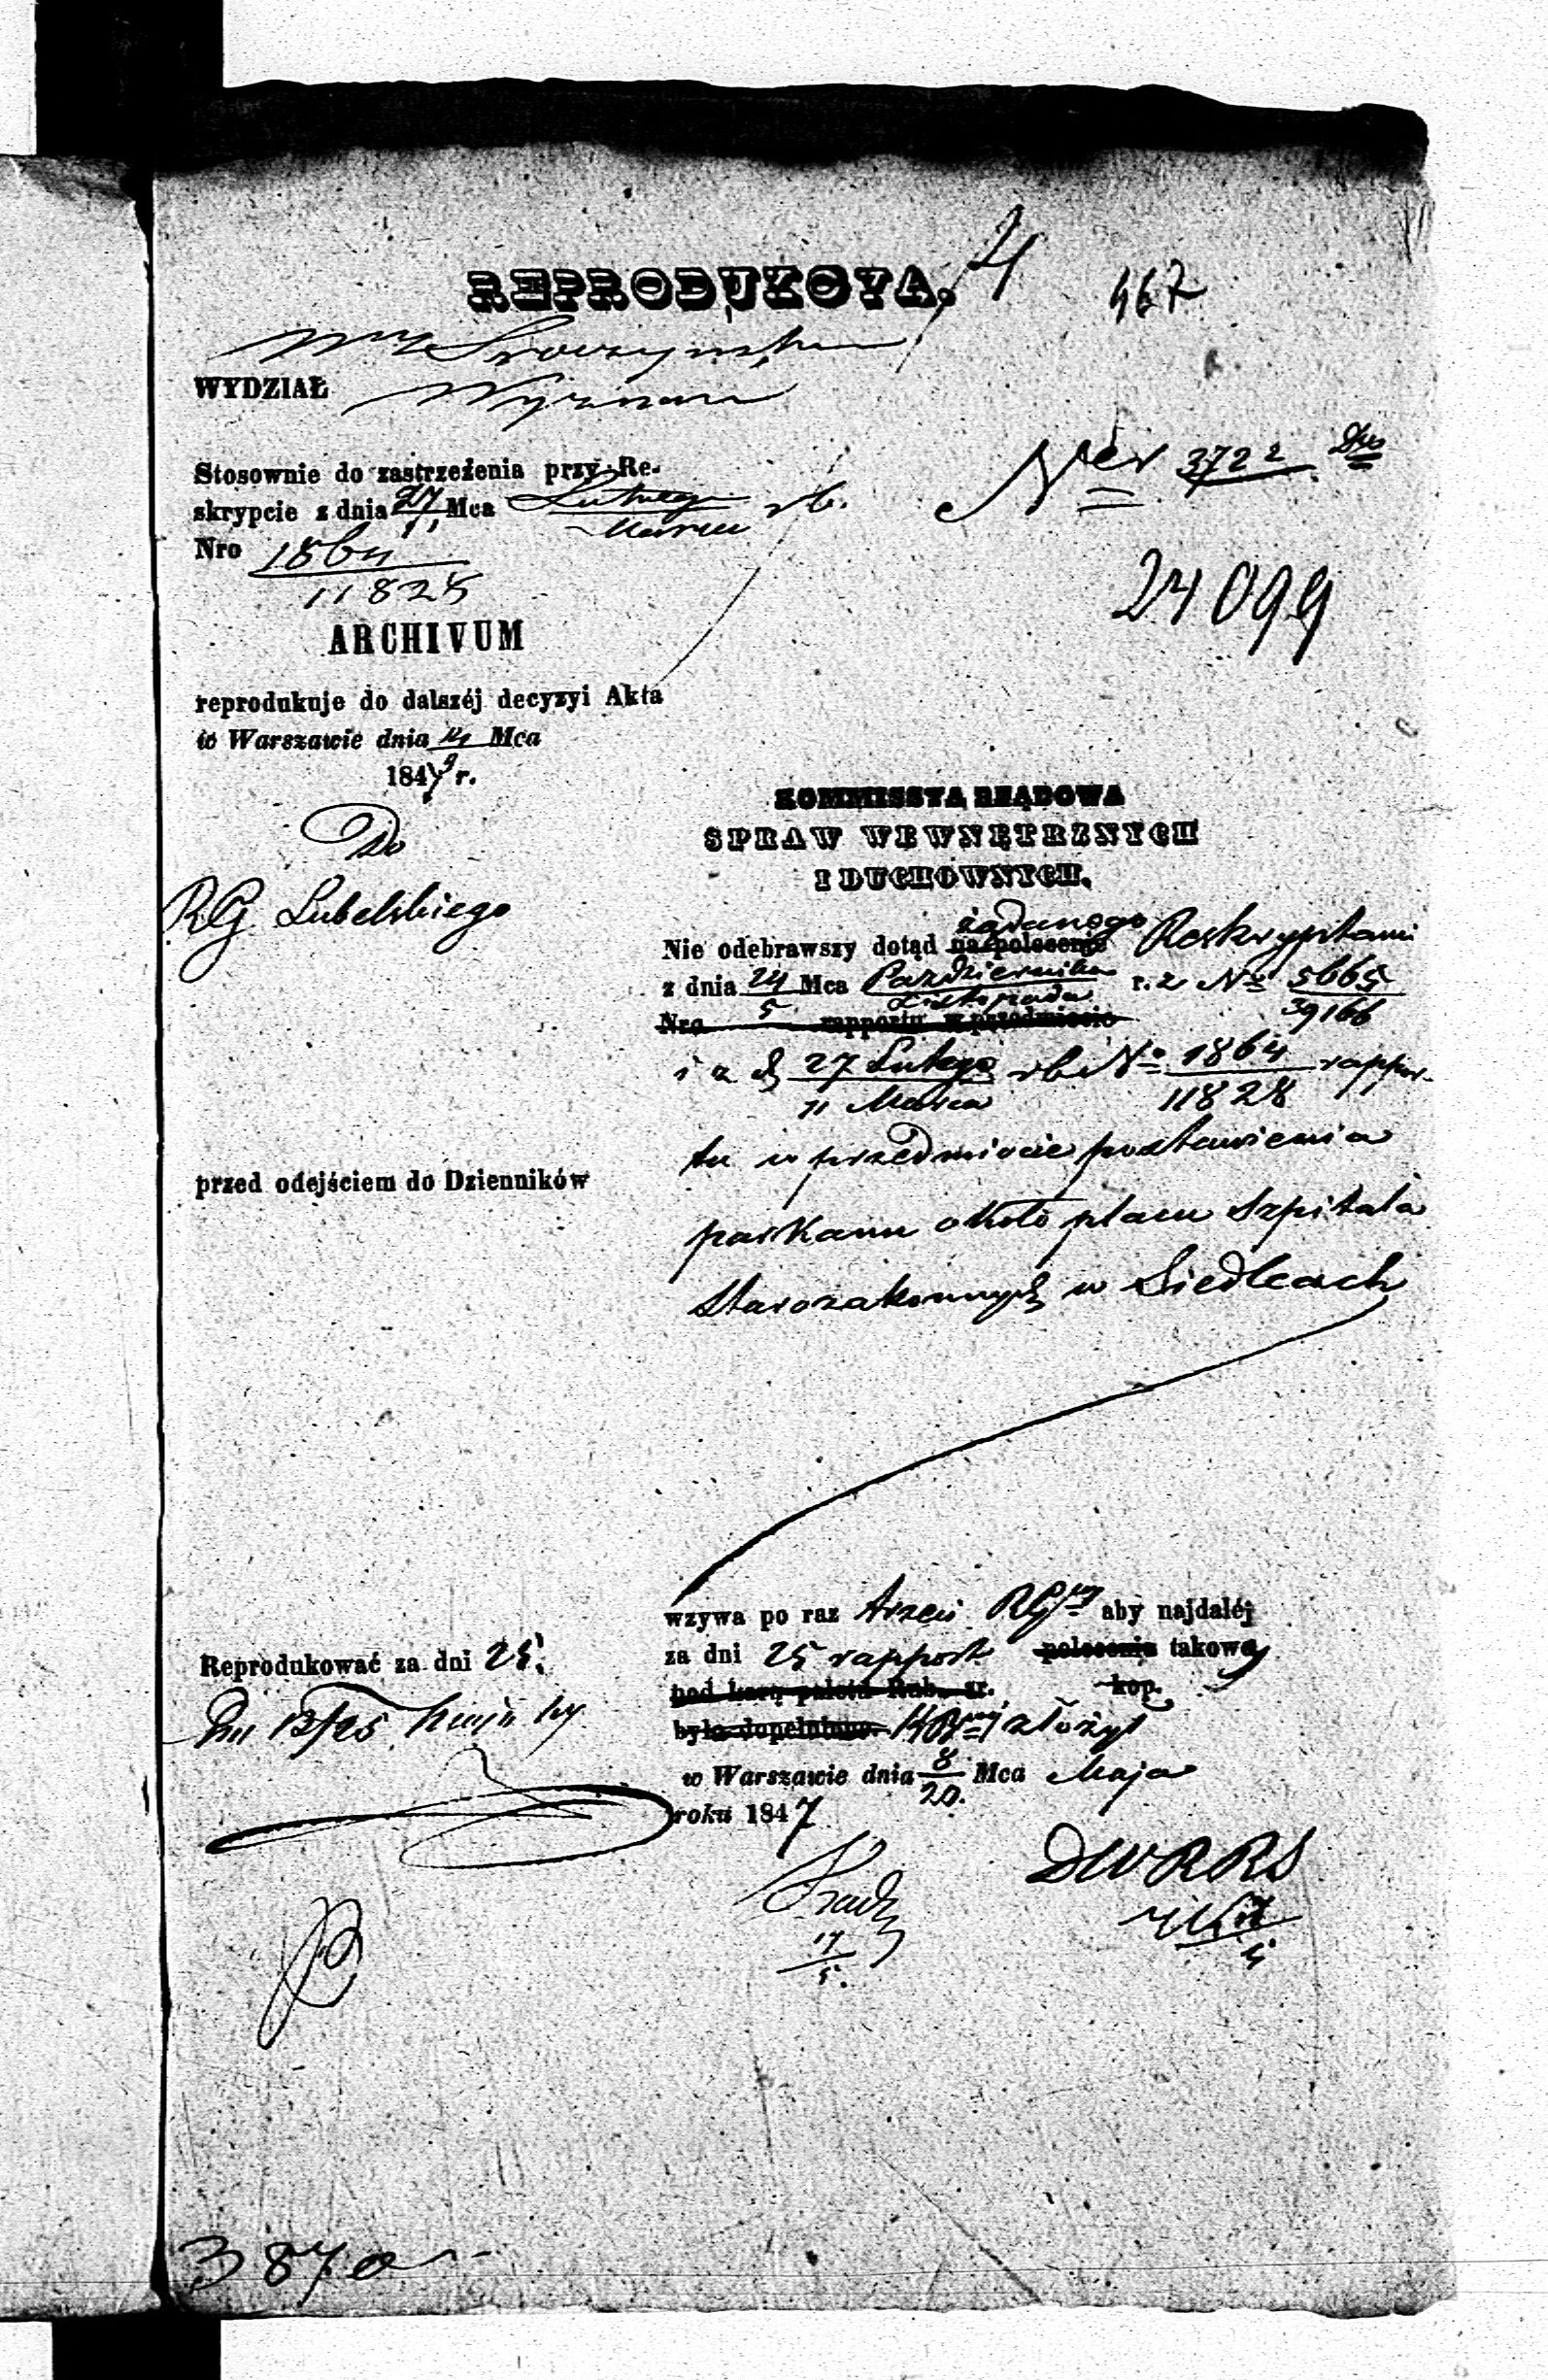 REPRODUKCYA.
4
467
WYDZIAŁ Wyznań
Ner 3722
24099
Stosownie do zastrzeżenia przy Re-
skrypcie z dnia 27/11 Mca Lutego/Marca rb.
Nro 1864/11828
ARCHIVUM
reprodukuje do dalszéj decyzyi Akta
w Warszawie dnia Mca
184 r.
Do
RG Lubelskiego
przed odejściem do Dzienników
Reprodukować za dni 25.
Dn 13/25
KOMMISSYA RZĄDOWA
SPRAW WEWNĘTRZNYCH
I DUCHOWNYCH.
żądanego
Nie odebrawszy dotąd na polecenie Reskryptami
z dnia 24/5 Mca Października/Listopada r. z No 5665/39166
Nro rapportu w przedmiocie
i z d 27 Lutego/11 Marca rb No 1864/11828 rappor-
tu w przedmiocie postawienia
parkanu około placu szpitala
starozakonnych w Siedlcach
wzywa po raz trzeci RGny aby najdaléj
za dni 25 rapport polecenie takowy
pod karą paletu Rub. sr. kop.
było dopełnione. KRny złożył
w Warszawie dnia 8/20. Mca Maja
roku 1847
17/5.
DWRRS
3870